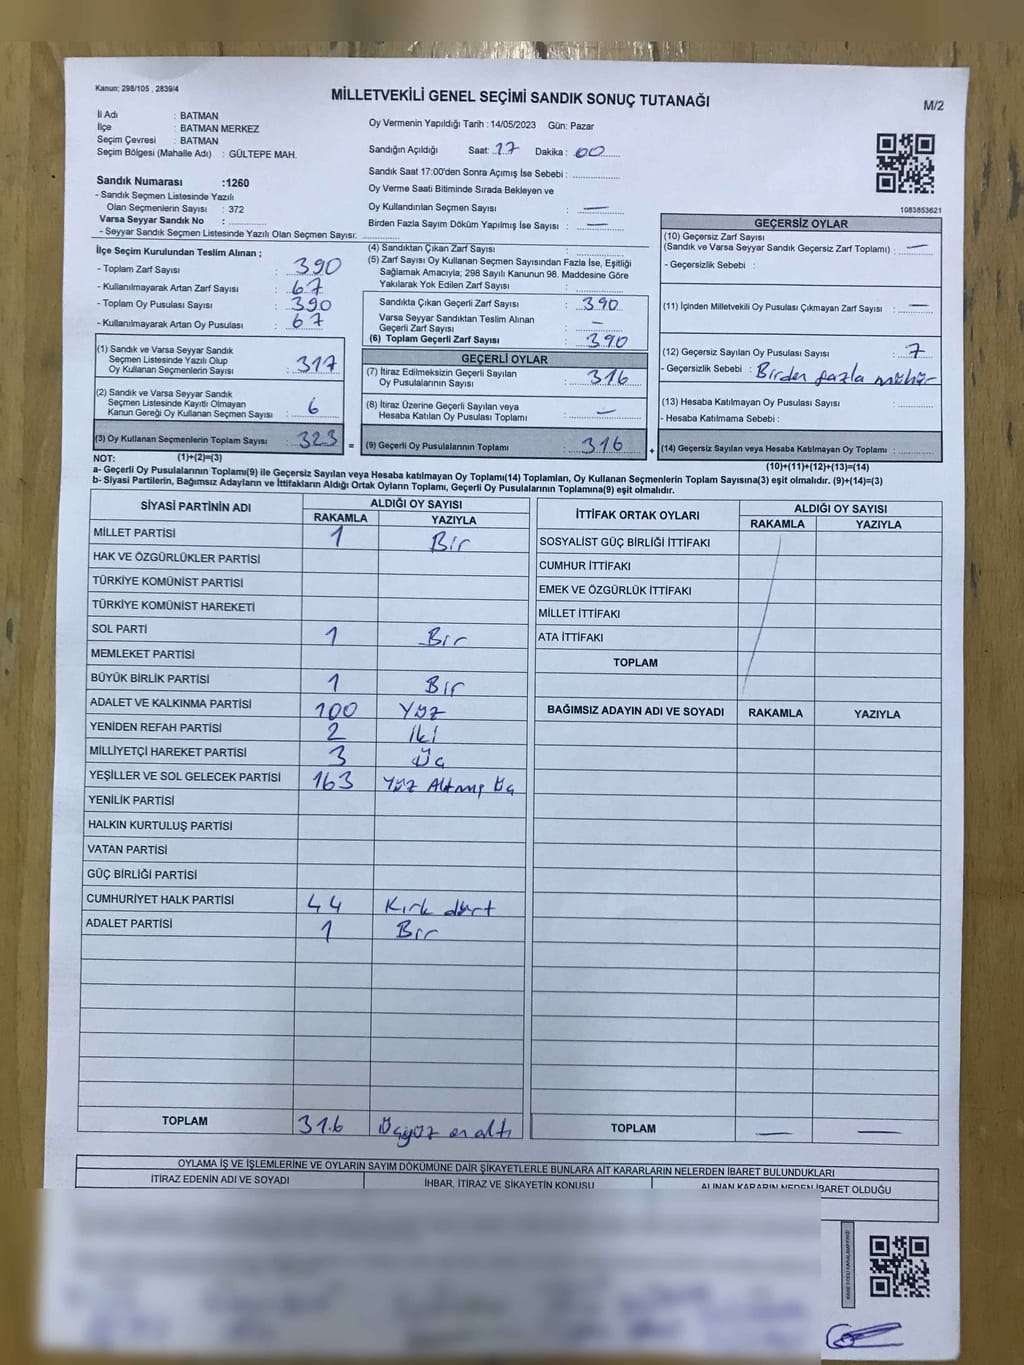 Kanun: 298/105 , 2839/4
MİLLETVEKİLİ GENEL SEÇİMİ SANDIK SONUÇ TUTANAĞI
M/2
İl Adı : BATMAN
İlçe : BATMAN MERKEZ
Seçim Çevresi : BATMAN
Seçim Bölgesi (Mahalle Adı) : GÜLTEPE MAH.
Oy Vermenin Yapıldığı Tarih : 14/05/2023 Gün: Pazar
Sandığın Açıldığı Saat: 17 Dakika : 00
Sandık Saat 17:00'den Sonra Açımış İse Sebebi :
Oy Verme Saati Bitiminde Sırada Bekleyen ve
Oy Kullandırılan Seçmen Sayısı : —
Birden Fazla Sayım Döküm Yapılmış İse Sayısı : —
Sandık Numarası :1260
- Sandık Seçmen Listesinde Yazılı
Olan Seçmenlerin Sayısı : 372
Varsa Seyyar Sandık No :
- Seyyar Sandık Seçmen Listesinde Yazılı Olan Seçmen Sayısı:
1083853621
İlçe Seçim Kurulundan Teslim Alınan ;
- Toplam Zarf Sayısı : 390
- Kullanılmayarak Artan Zarf Sayısı : 67
- Toplam Oy Pusulası Sayısı : 390
- Kullanılmayarak Artan Oy Pusulası : 67
(1) Sandık ve Varsa Seyyar Sandık
Seçmen Listesinde Yazılı Olup
Oy Kullanan Seçmenlerin Sayısı : 317
(2) Sandık ve Varsa Seyyar Sandık
Seçmen Listesinde Kayıtlı Olmayan
Kanun Gereği Oy Kullanan Seçmen Sayısı : 6
(3) Oy Kullanan Seçmenlerin Toplam Sayısı : 323
(4) Sandıktan Çıkan Zarf Sayısı :
(5) Zarf Sayısı Oy Kullanan Seçmen Sayısından Fazla İse, Eşitliği
Sağlamak Amacıyla; 298 Sayılı Kanunun 98. Maddesine Göre
Yakılarak Yok Edilen Zarf Sayısı :
Sandıkta Çıkan Geçerli Zarf Sayısı : 390
Varsa Seyyar Sandıktan Teslim Alınan
Geçerli Zarf Sayısı : —
(6) Toplam Geçerli Zarf Sayısı : 390
GEÇERLİ OYLAR
(7) İtiraz Edilmeksizin Geçerli Sayılan
Oy Pusulalarının Sayısı : 316
(8) İtiraz Üzerine Geçerli Sayılan veya
Hesaba Katılan Oy Pusulası Toplamı : —
= (9) Geçerli Oy Pusulalarının Toplamı : 316 +
GEÇERSİZ OYLAR
(10) Geçersiz Zarf Sayısı
(Sandık ve Varsa Seyyar Sandık Geçersiz Zarf Toplamı) : —
- Geçersizlik Sebebi :
(11) İçinden Milletvekili Oy Pusulası Çıkmayan Zarf Sayısı : —
(12) Geçersiz Sayılan Oy Pusulası Sayısı : 7
- Geçersizlik Sebebi : Birden fazla mühür
(13) Hesaba Katılmayan Oy Pusulası Sayısı :
- Hesaba Katılmama Sebebi :
(14) Geçersiz Sayılan veya Hesaba Katılmayan Oy Toplamı :
NOT: (1)+(2)=(3)
(10)+(11)+(12)+(13)=(14)
a- Geçerli Oy Pusulalarının Toplamı(9) ile Geçersiz Sayılan veya Hesaba katılmayan Oy Toplamı(14) Toplamları, Oy Kullanan Seçmenlerin Toplam Sayısına(3) eşit olmalıdır. (9)+(14)=(3)
b- Siyasi Partilerin, Bağımsız Adayların ve İttifakların Aldığı Ortak Oyların Toplamı, Geçerli Oy Pusulalarının Toplamına(9) eşit olmalıdır.
SİYASİ PARTİNİN ADI ALDIĞI OY SAYISI
RAKAMLA YAZIYLA
MİLLET PARTİSİ 1 Bir
HAK VE ÖZGÜRLÜKLER PARTİSİ
TÜRKİYE KOMÜNİST PARTİSİ
TÜRKİYE KOMÜNİST HAREKETİ
SOL PARTİ 1 Bir
MEMLEKET PARTİSİ
BÜYÜK BİRLİK PARTİSİ 1 Bir
ADALET VE KALKINMA PARTİSİ 100 Yüz
YENİDEN REFAH PARTİSİ 2 İki
MİLLİYETÇİ HAREKET PARTİSİ 3 Üç
YEŞİLLER VE SOL GELECEK PARTİSİ 163 Yüz Altmış Üç
YENİLİK PARTİSİ
HALKIN KURTULUŞ PARTİSİ
VATAN PARTİSİ
GÜÇ BİRLİĞİ PARTİSİ
CUMHURİYET HALK PARTİSİ 44 Kırk dört
ADALET PARTİSİ 1 Bir
TOPLAM 316 Üçyüz on altı
İTTİFAK ORTAK OYLARI ALDIĞI OY SAYISI
RAKAMLA YAZIYLA
SOSYALİST GÜÇ BİRLİĞİ İTTİFAKI
CUMHUR İTTİFAKI
EMEK VE ÖZGÜRLÜK İTTİFAKI
MİLLET İTTİFAKI
ATA İTTİFAKI
TOPLAM
BAĞIMSIZ ADAYIN ADI VE SOYADI RAKAMLA YAZIYLA
TOPLAM — —
OYLAMA İŞ VE İŞLEMLERİNE VE OYLARIN SAYIM DÖKÜMÜNE DAİR ŞİKAYETLERLE BUNLARA AİT KARARLARIN NELERDEN İBARET BULUNDUKLARI
İTİRAZ EDENİN ADI VE SOYADI İHBAR, İTİRAZ VE ŞİKAYETİN KONUSU ALINAN KARARIN NEDEN İBARET OLDUĞU